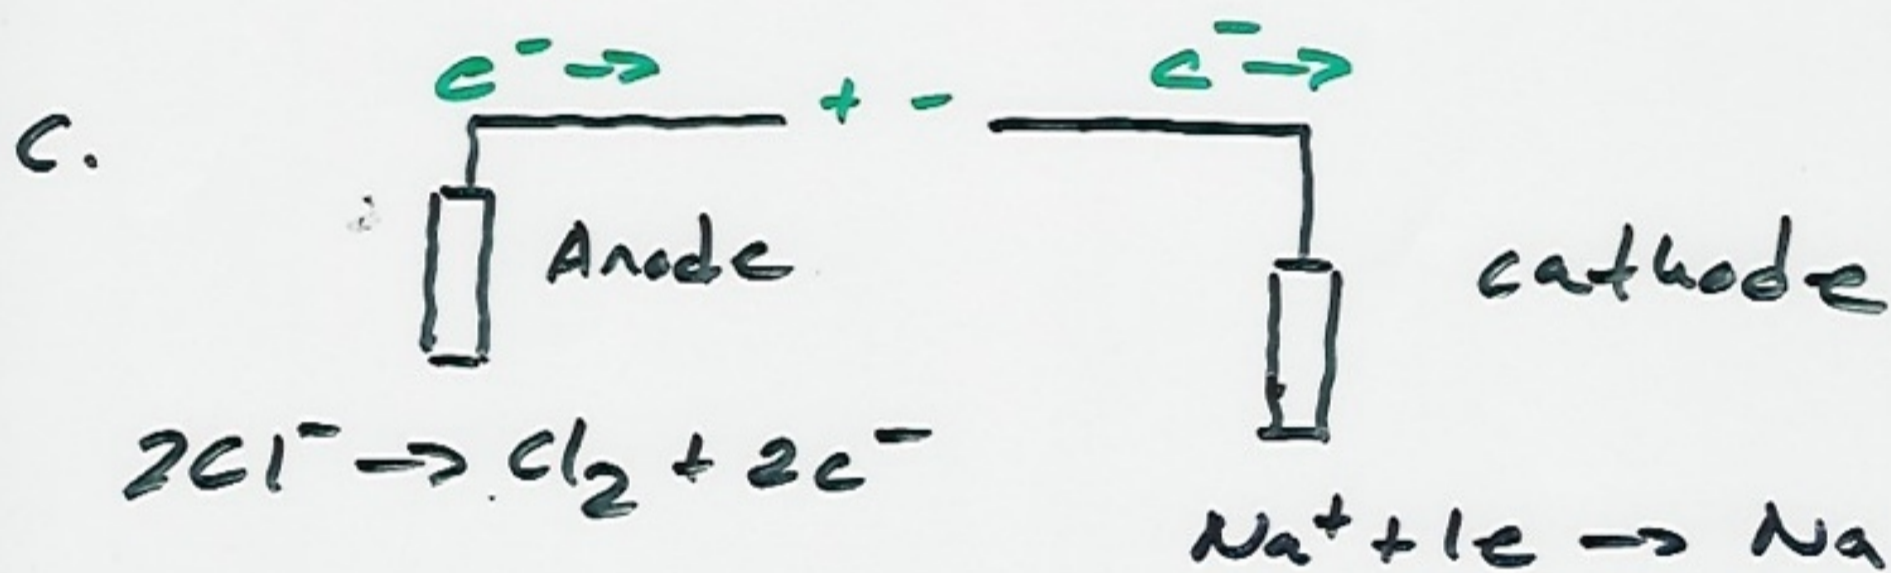 e⁻ → + - e⁻ →
C.
Anode cathode
2Cl⁻ → Cl₂ + 2e⁻
Na⁺ + 1e → Na